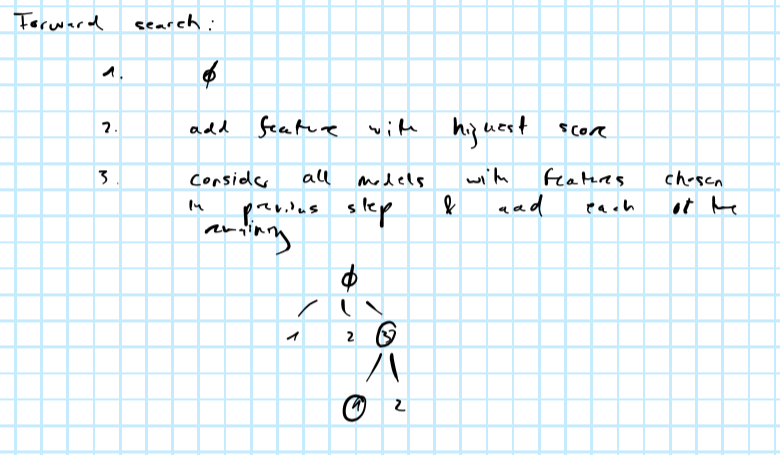 Forward search:
1. ϕ
2. add feature with highest score
3. consider all models with features chosen
in previous step & add each of the
remaining
ϕ
1 2 3
1 2